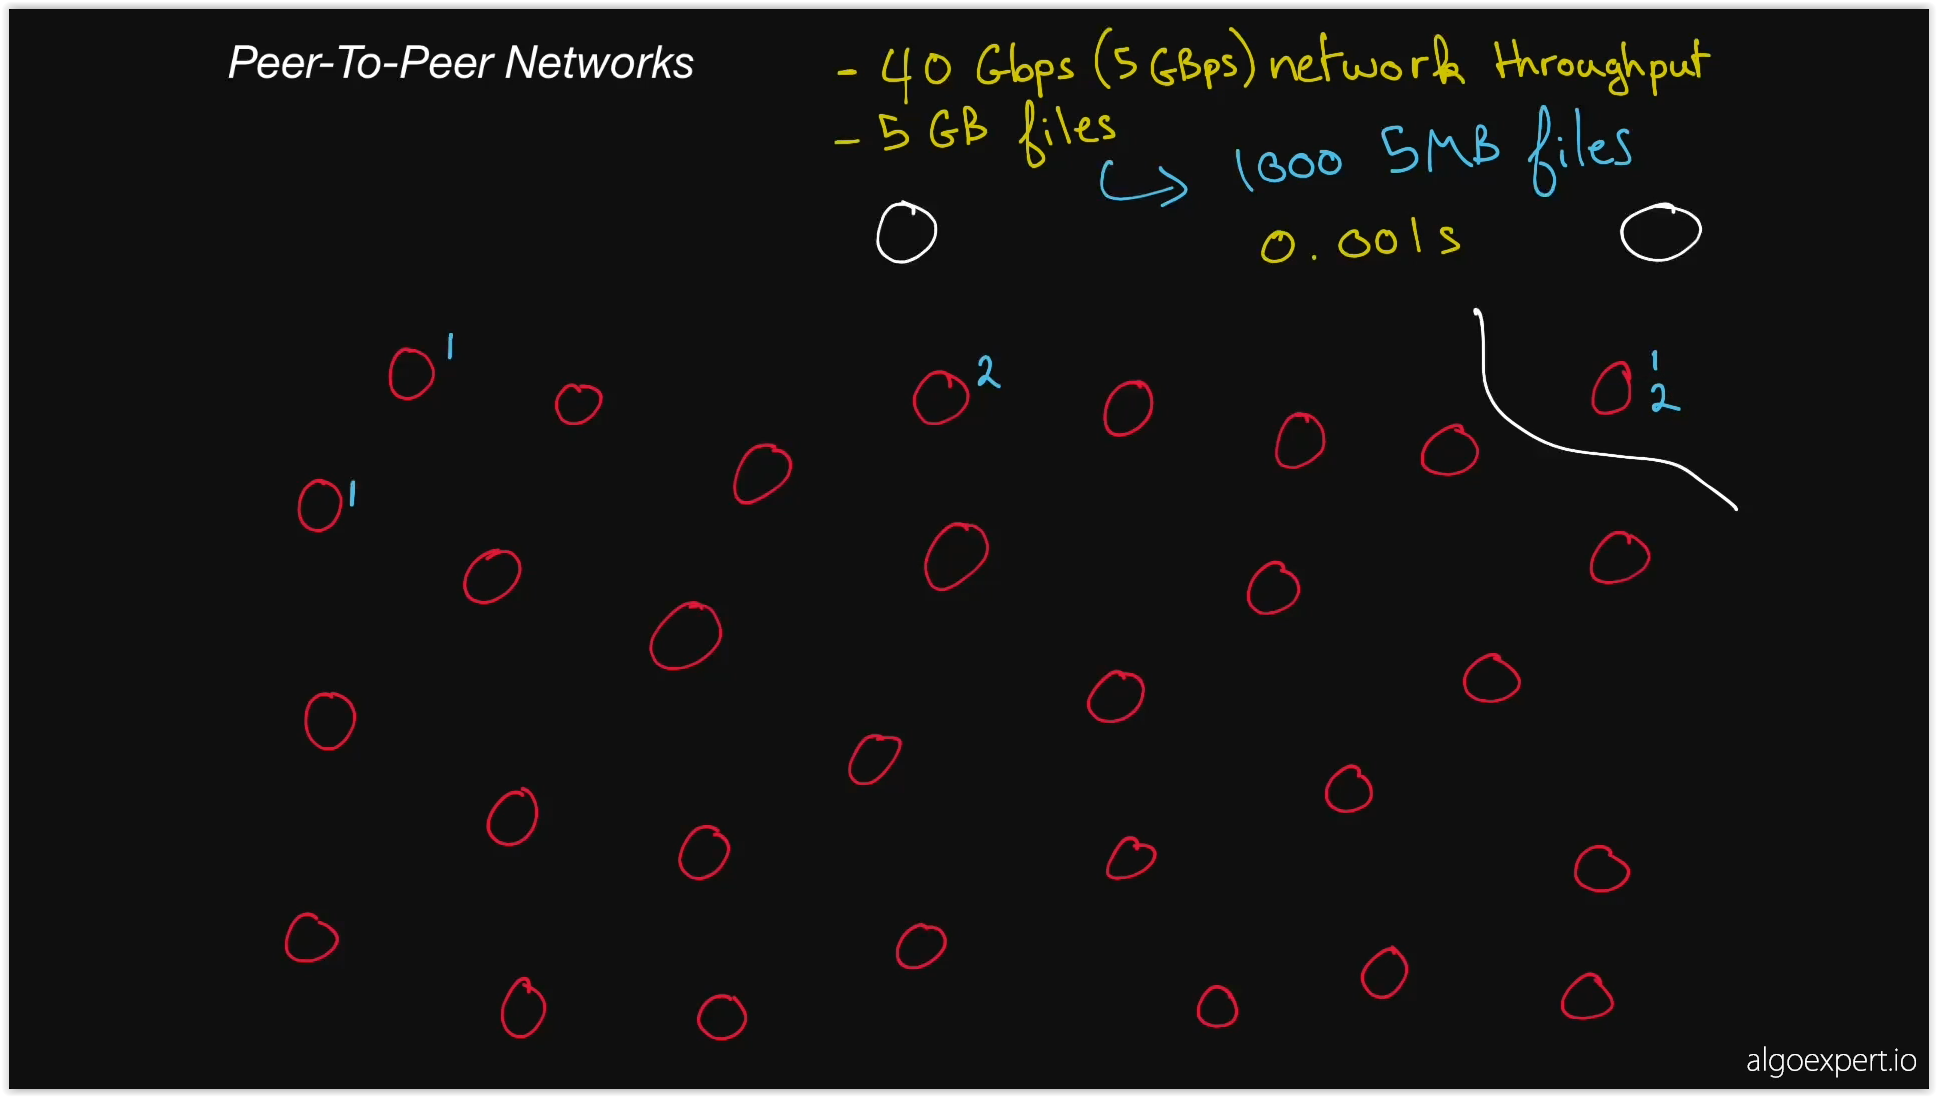 Peer-To-Peer Networks
- 40 Gbps (5 GBps) network throughput
- 5 GB files
1000 5MB files
0.001s
1
2
1
2
1
algoexpert.io